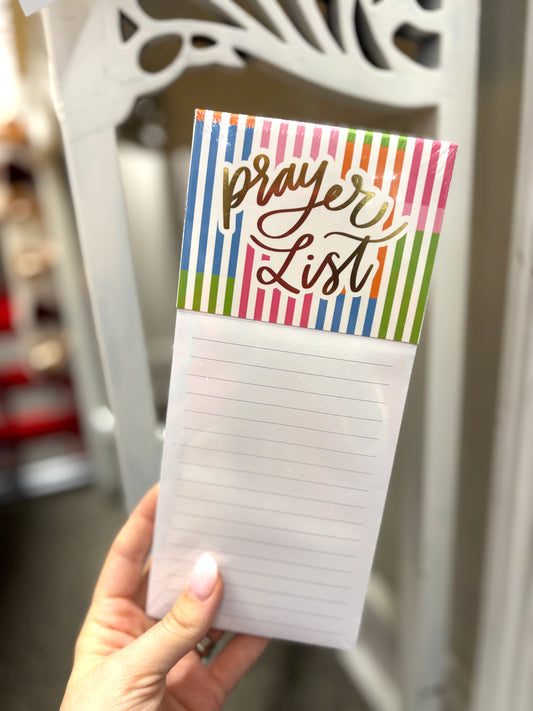 prayer
List